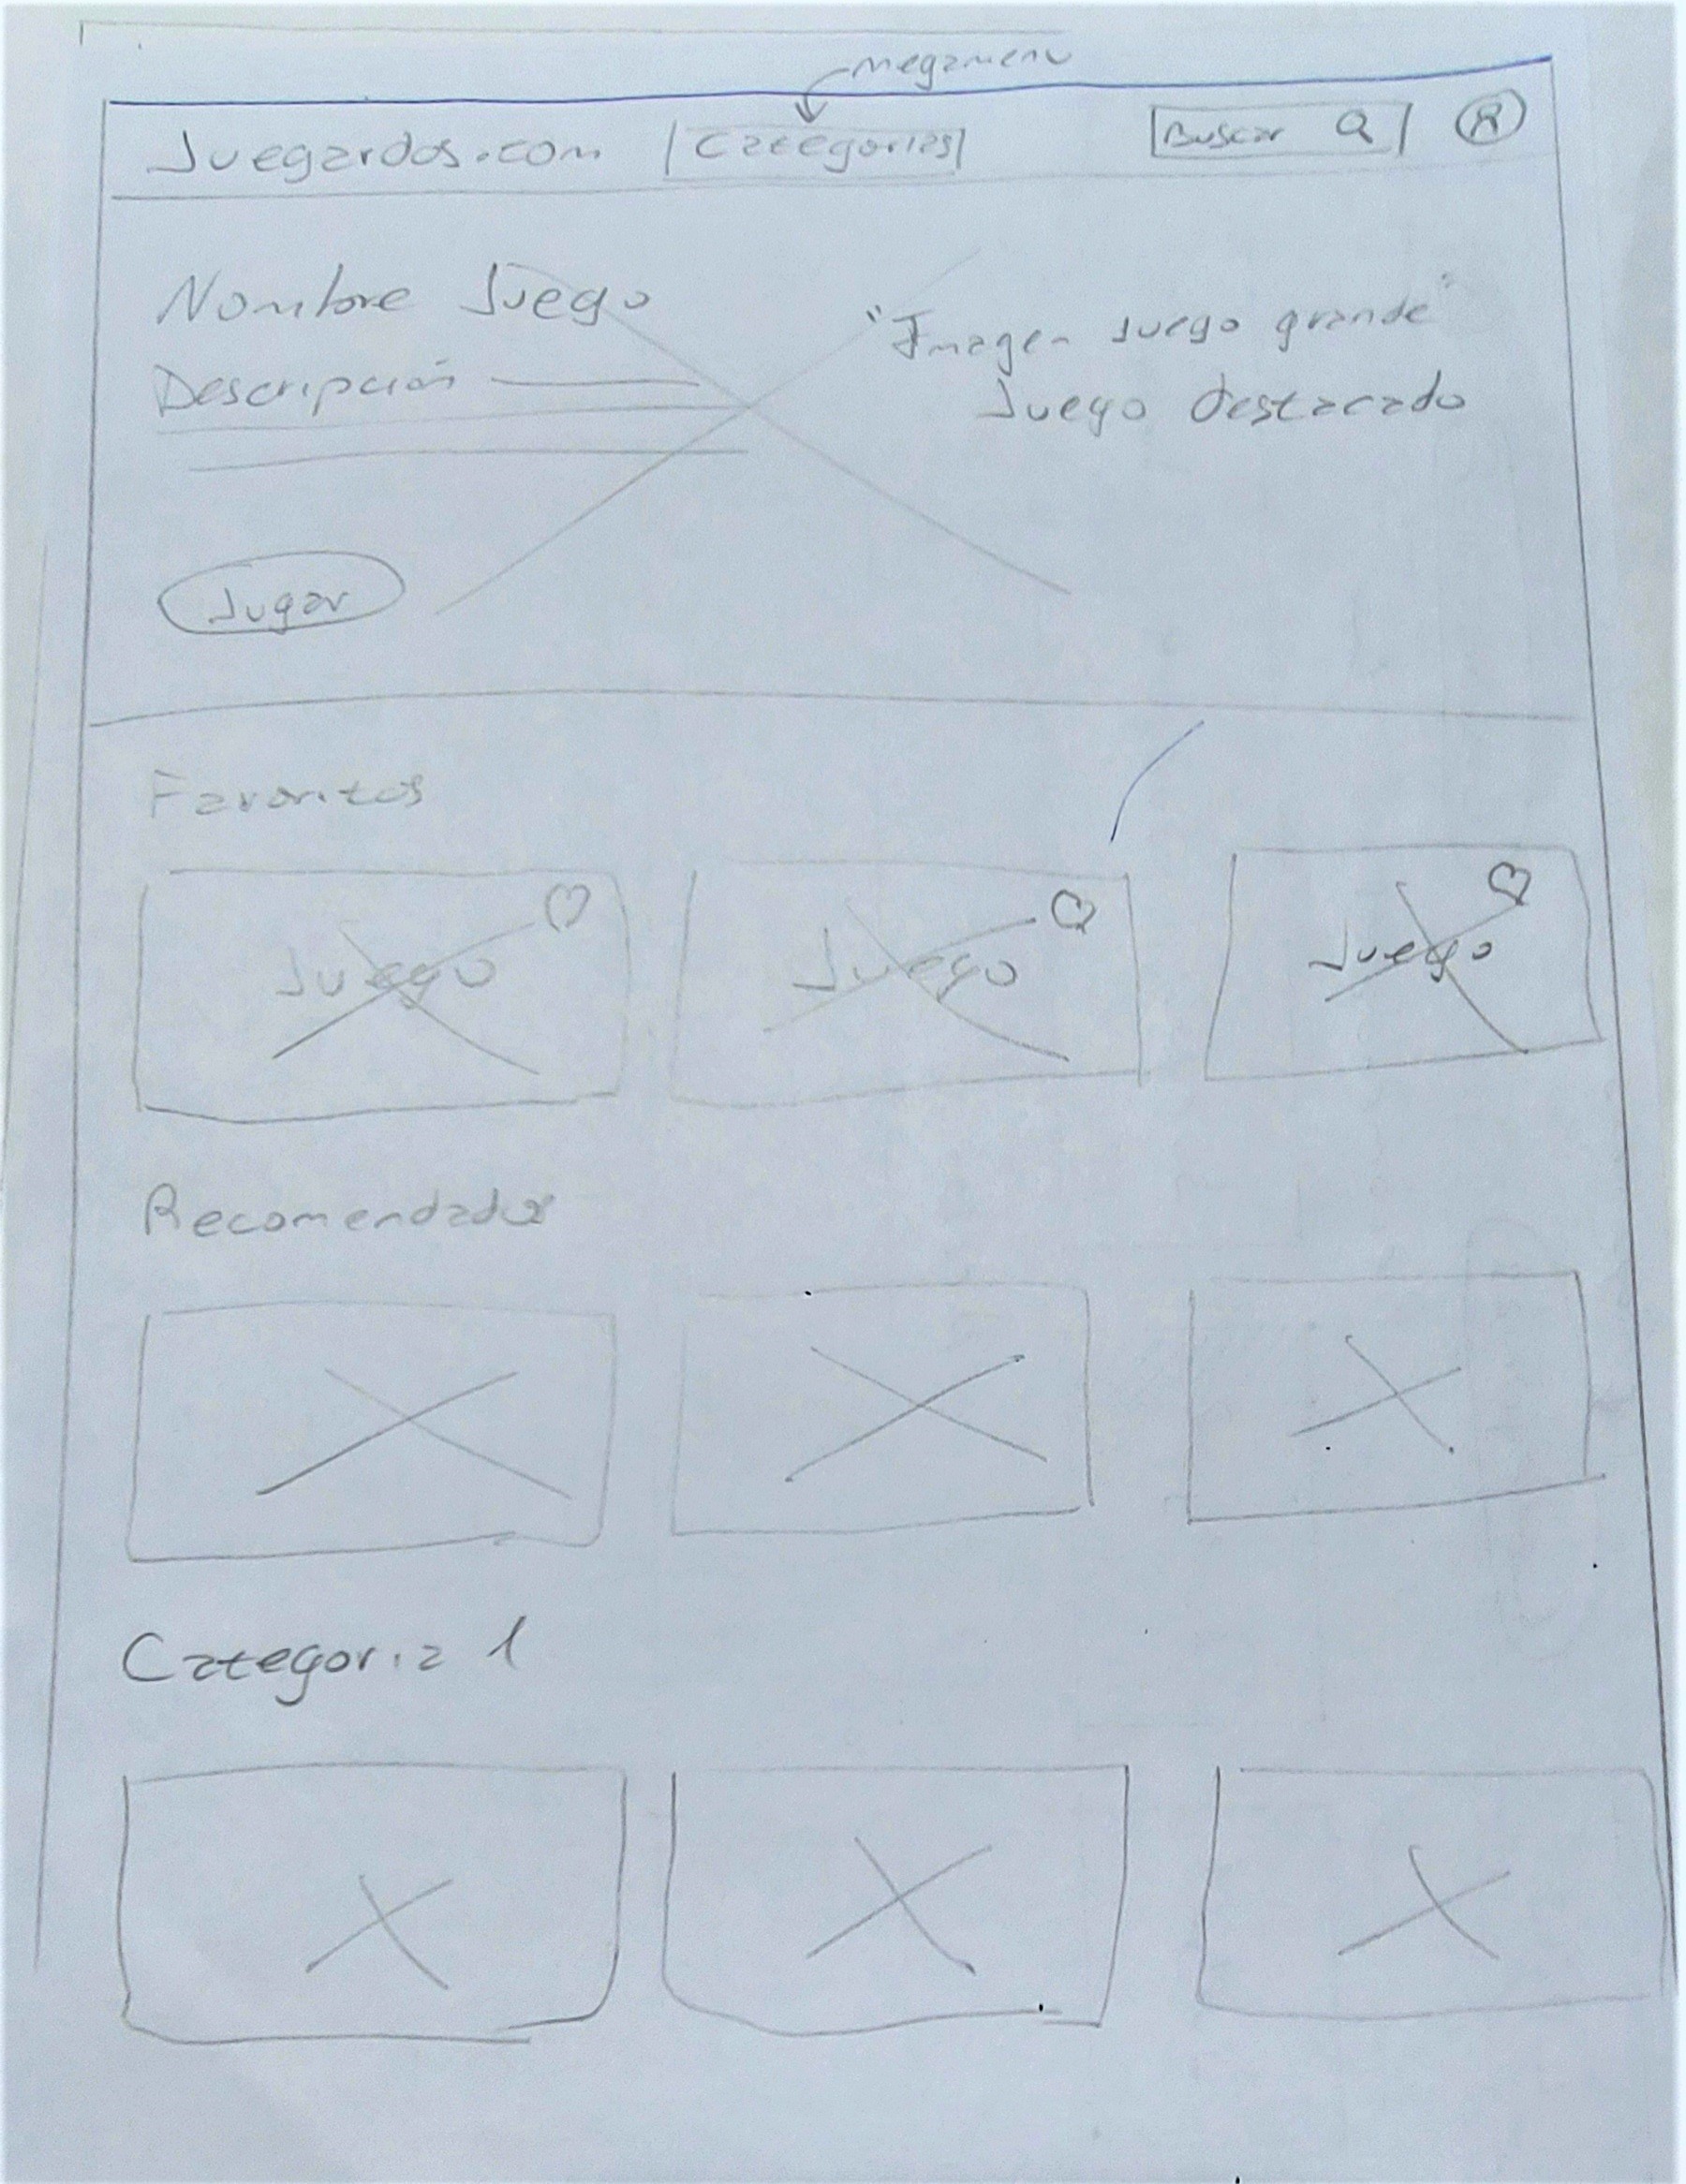 megamenu
Juegardos.com Categorias Buscar
Nombre Juego
"Imagen Juego grande"
Descripción
Juego destacado
Jugar
Favoritos
Juego Juego Juego
Recomendados
Categoria 1